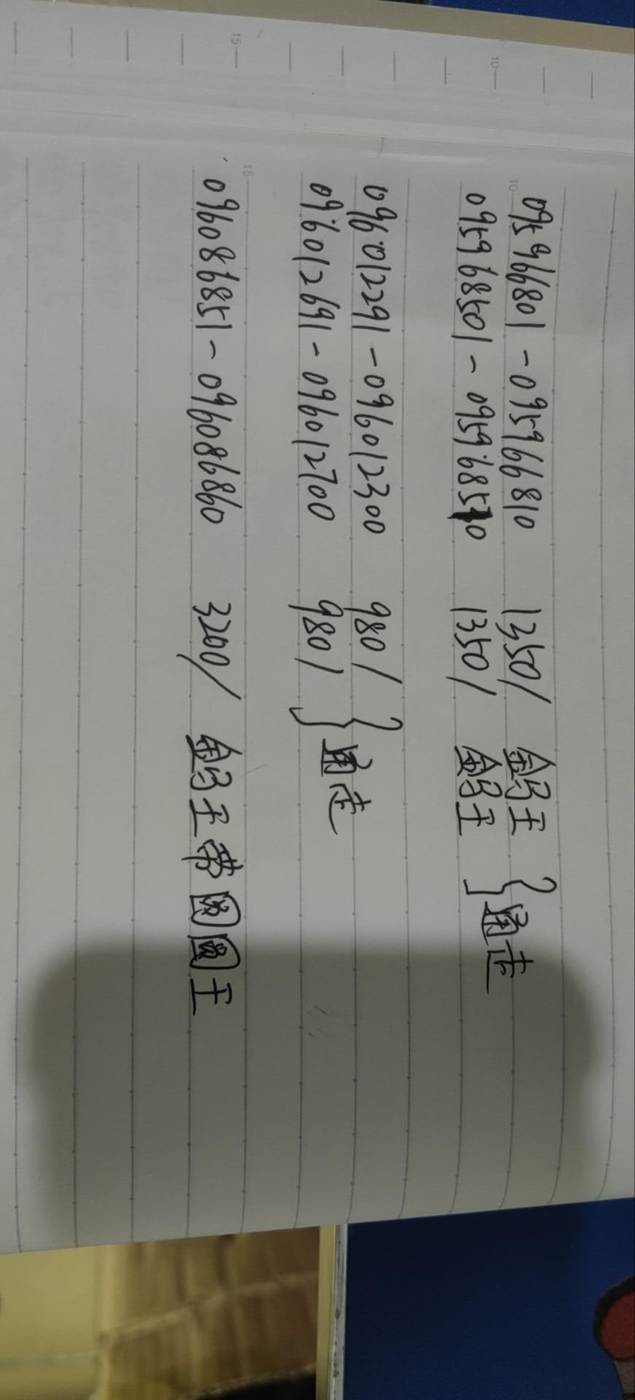 095966801-095966810 1350/ 鸽王
095968501-095968510 1350/ 鸽王 } 通走
096012291-096012300 980/
096012691-096012700 980/ } 通走
096086851-096086860 3200/ 鸽王帝国国王